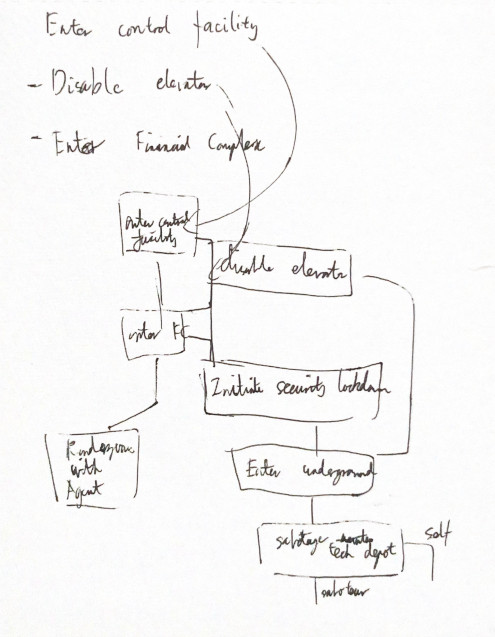 Enter control facility
- Disable elevator
- Enter Financial Complex
enter control
facility
disable elevator
enter FC
Initiate security lockdown
Rendezvous
with
Agent
Enter underground
sabotage
tech depot
self
saboteur